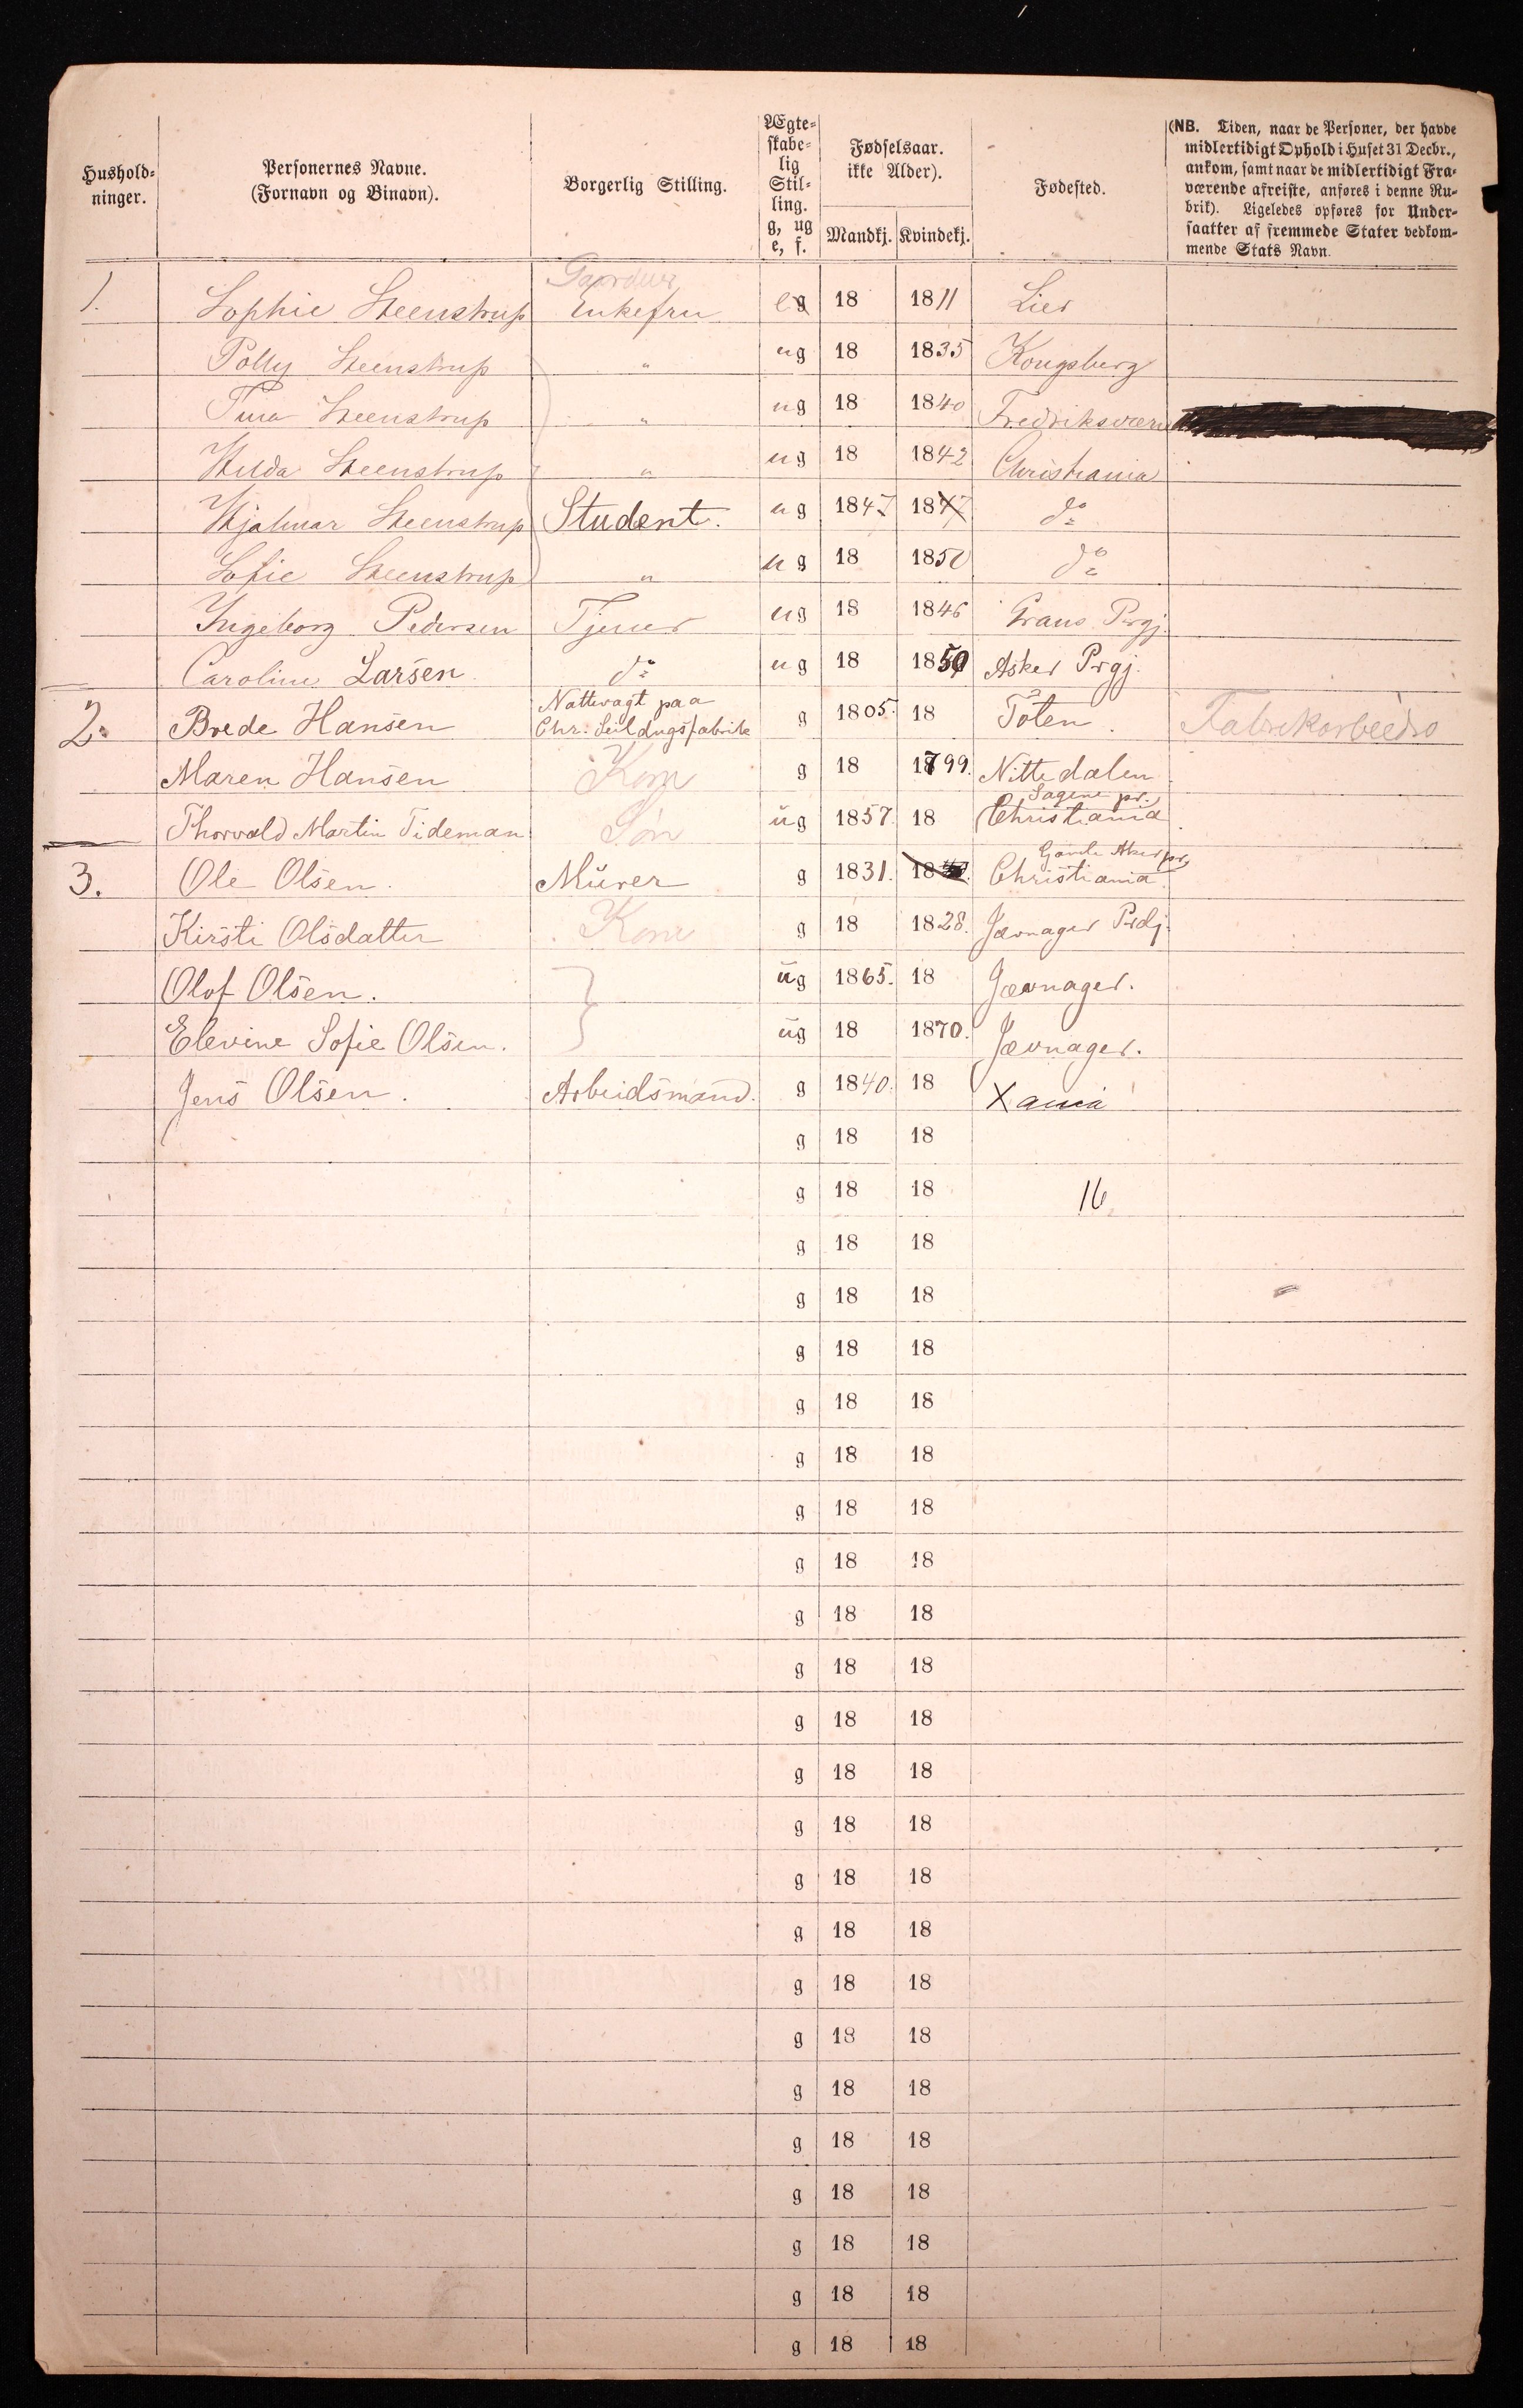 Hushold=
ninger.
Personernes Navne.
(Fornavn og Binavn).
Borgerlig Stilling.
Ægte=
skabe=
lig
Stil=
ling.
g, ug
e, f.
Fødselsaar.
ikke Alder).
Mandkj. Kvindekj.
Fødested.
(NB. Tiden, naar de Personer, der havde
midlertidigt Ophold i Huset 31 Decbr.,
ankom, samt naar de midlertidigt Fra=
værende afreiste, anføres i denne Ru=
brik). Ligeledes opføres for Under=
saatter af fremmede Stater vedkom=
mende Stats Navn.
1. Sophie Steenstrup Enkefru e g 18 1811 Lier
Polly Steenstrup " ug 18 1835 Kongsberg
Tina Steenstrup " ug 18 1840 Fredriksværn
Hilda Steenstrup " ug 18 1842 Christiania
Hjalmar Steenstrup Student. ug 1847 1847 do
Sofie Steenstrup " ug 18 1850 do
Ingeborg Pedersen Tjener ug 18 1846 Grans Prgj.
Caroline Larsen do ug 18 1850 Asker Prgj.
2. Brede Hansen Nattevagt paa
Chr. Seildugsfabrik g 1805. 18 Toten Fabrikarbeider
Maren Hansen Kone g 18 1799. Nittedalen
Thorvald Martin Tideman Søn ug 1857. 18 Sagene pr.
Christiania
3. Ole Olsen. Murer g 1831. 18 Gamle Aker pr.
Christiania.
Kirsti Olsdatter Kone g 18 1828. Jævnager Prdj.
Olof Olsen. ug 1865. 18 Jævnager.
Elevine Sofie Olsen. ug 18 1870. Jævnager.
Jens Olsen. Arbeidsmand. g 1840. 18 Xania
g 18 18
g 18 18 16
g 18 18
g 18 18
g 18 18
g 18 18
g 18 18
g 18 18
g 18 18
g 18 18
g 18 18
g 18 18
g 18 18
g 18 18
g 18 18
g 18 18
g 18 18
g 18 18
g 18 18
g 18 18
g 18 18
g 18 18
g 18 18
g 18 18